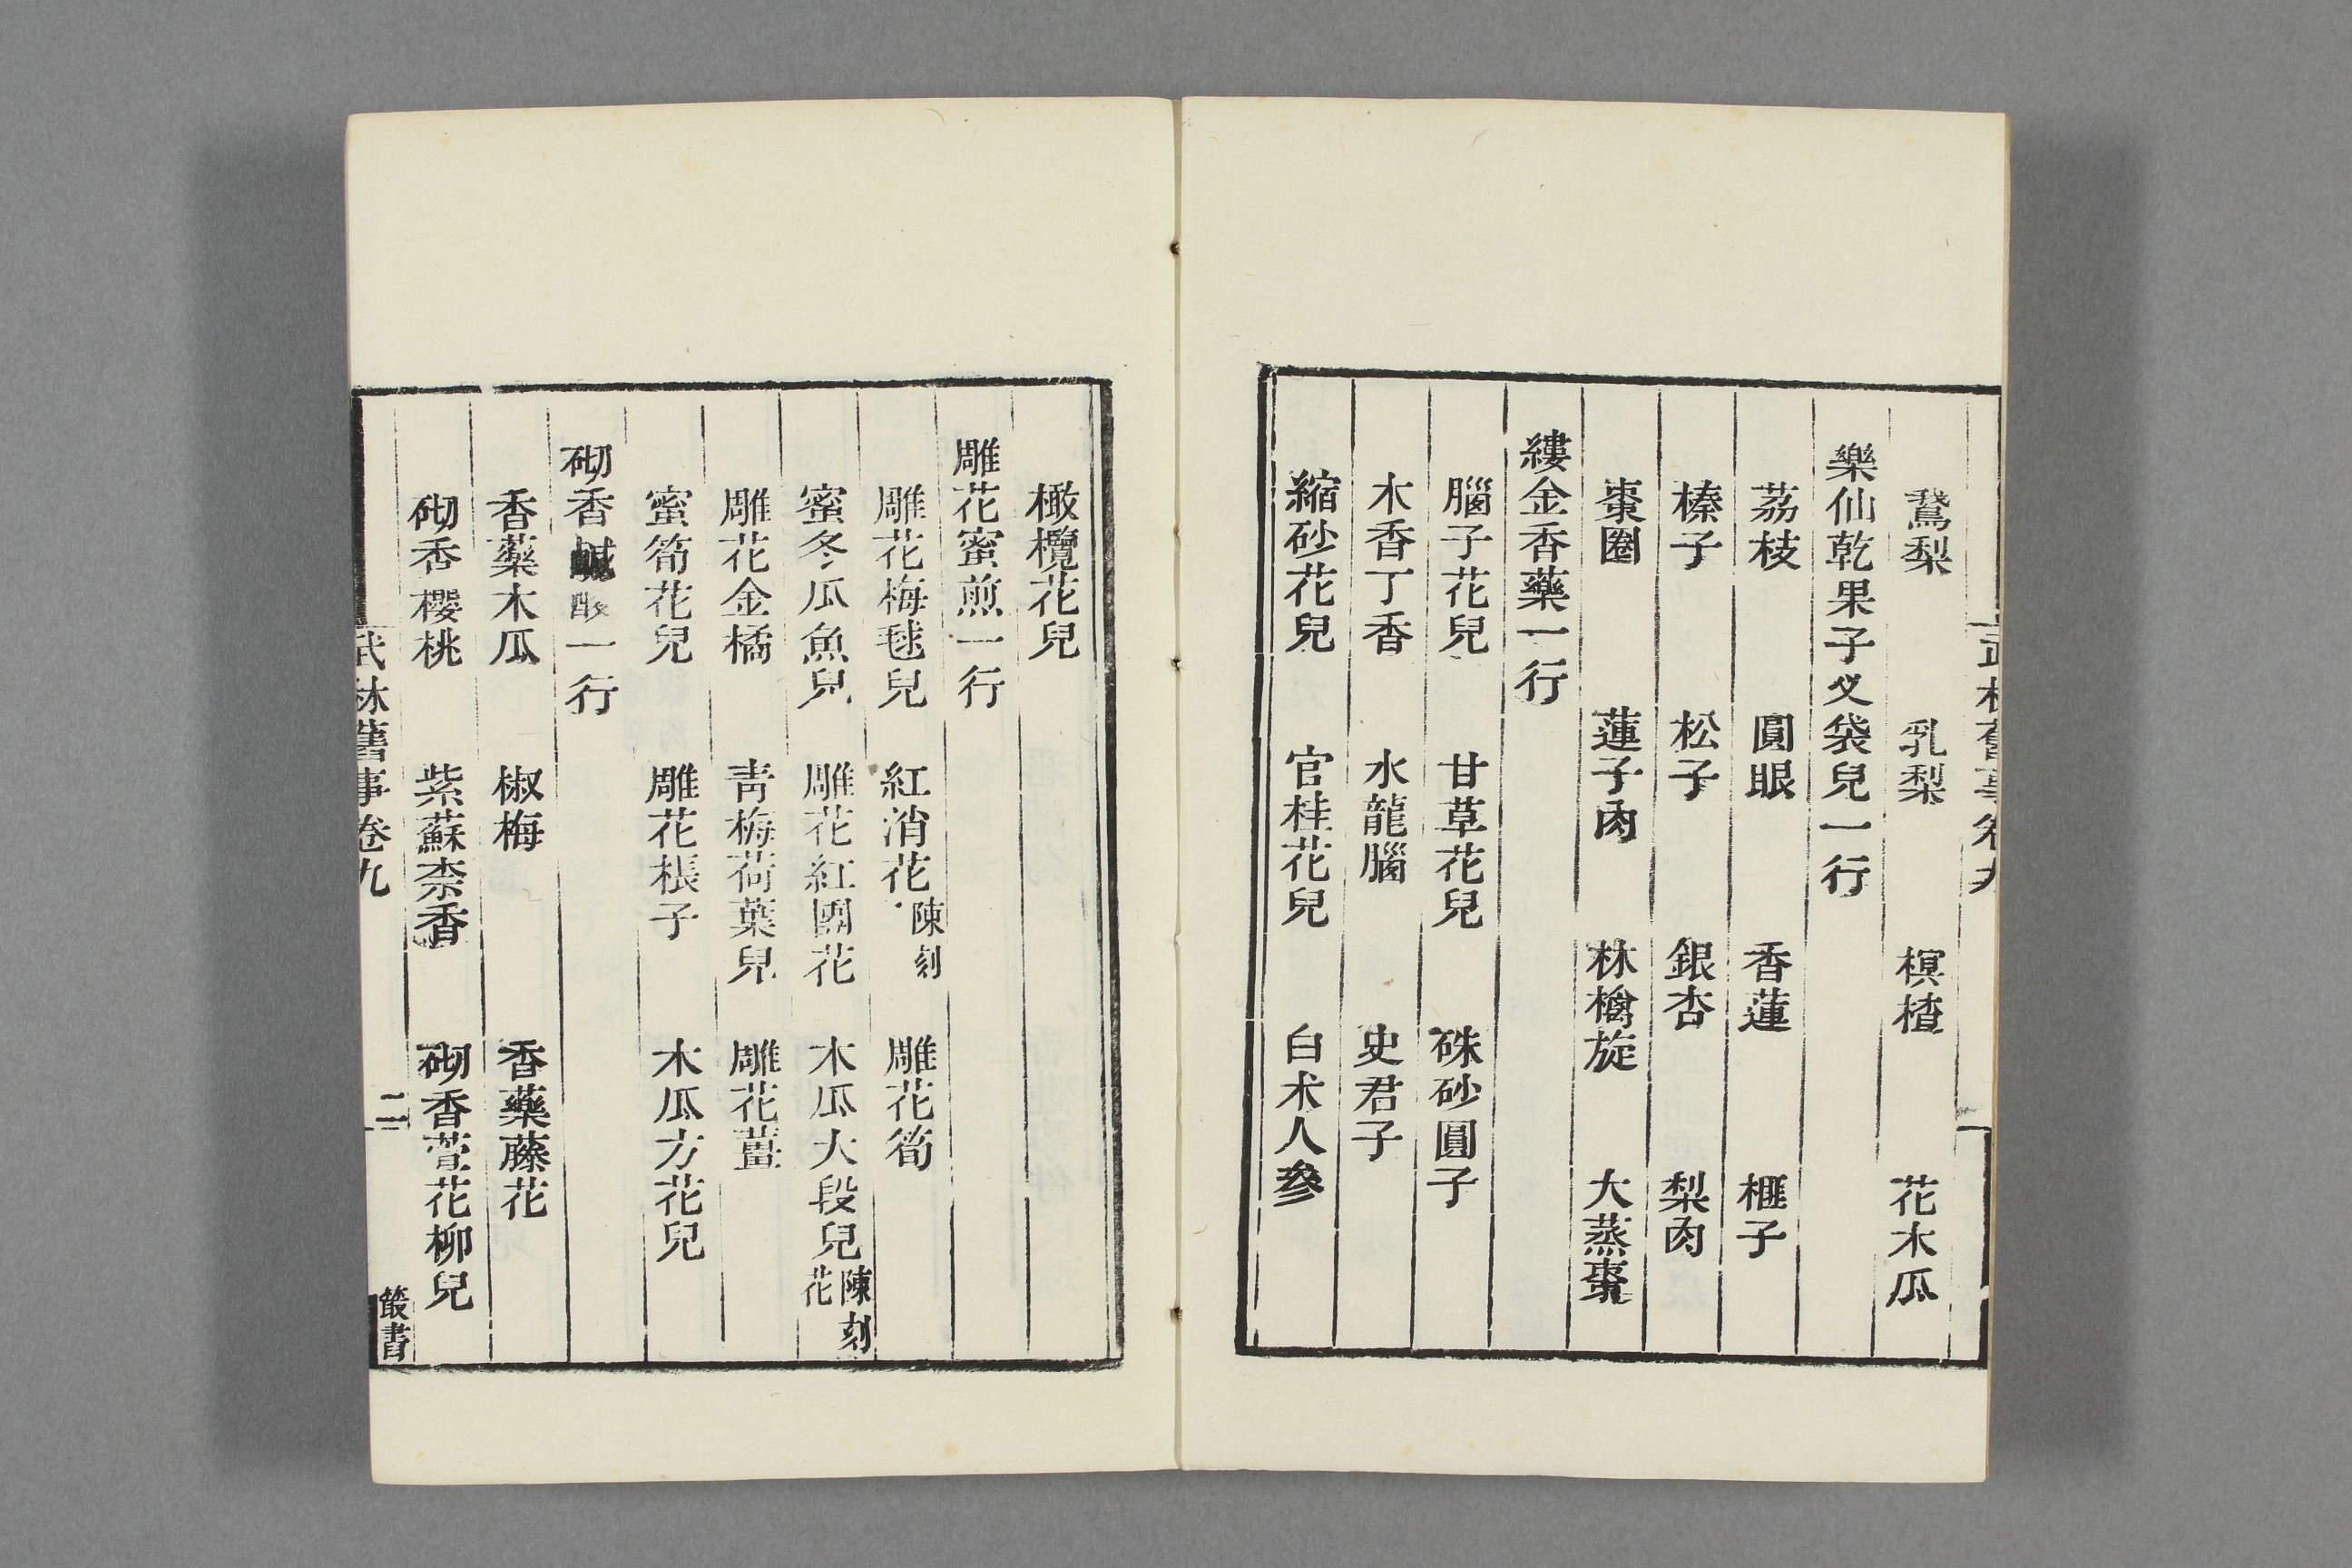 武林舊事卷九
鵞梨 乳梨 榠樝 花木瓜
樂仙乾果子义袋兒一行
荔枝 圓眼 香蓮 榧子
榛子 松子 銀杏 梨肉
棗圈 蓮子肉 林檎旋 大蒸棗
縷金香藥一行
腦子花兒 甘草花兒 硃砂圓子
木香丁香 水龍腦 史君子
縮砂花兒 官桂花兒 白术人參
橄欖花兒
雕花蜜煎一行
雕花梅毬兒 紅消花陳刻 雕花筍
蜜冬瓜魚兒 雕花紅團花 木瓜大段兒陳刻花
雕花金橘 青梅荷葉兒 雕花薑
蜜筍花兒 雕花棖子 木瓜方花兒
砌香鹹酸一行
香藥木瓜 椒梅 香藥藤花
砌香櫻桃 紫蘇柰香 砌香萱花柳兒
武林舊事卷九 二 叢書